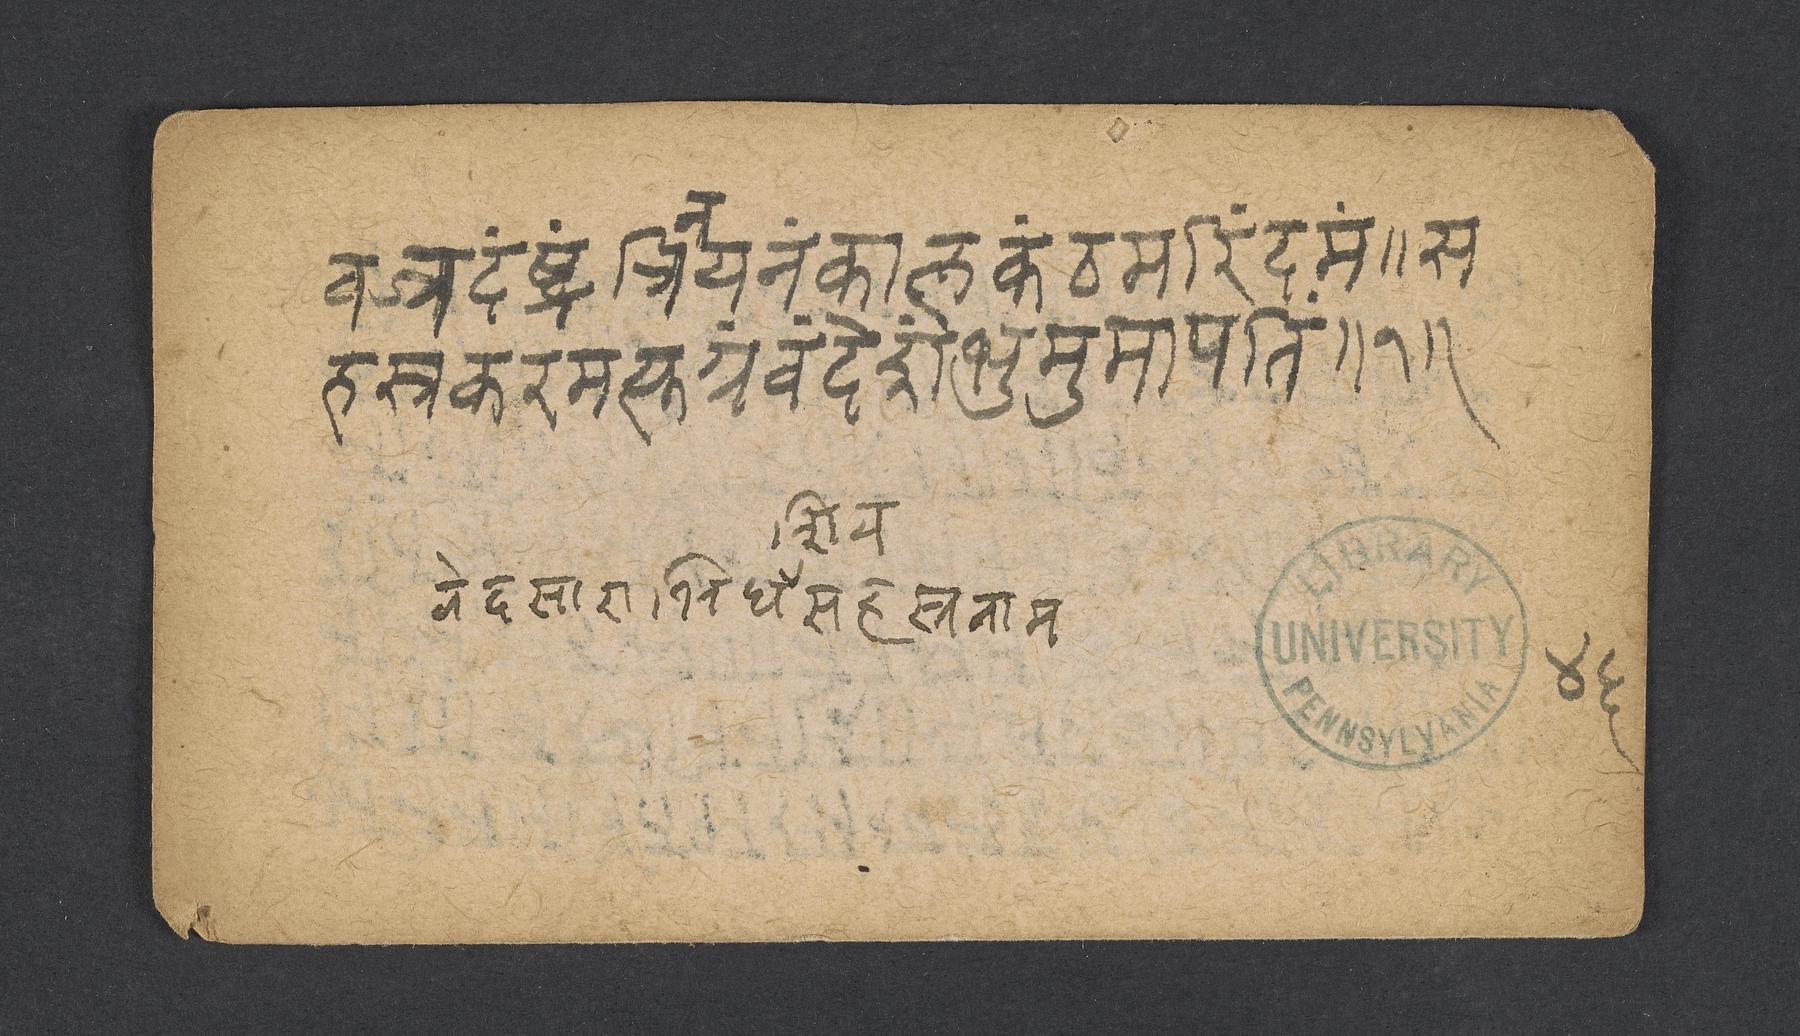 वज्रदंष्ट्रं त्रिनयनं कालकंठमरिंदमं॥ स
हस्रकरमत्युग्रं वंदे शंभुमुमापतिं॥१॥
शिव
वेदसाराभिधँ सहस्रनाम
LIBRARY
UNIVERSITY
PENNSYLVANIA
४६